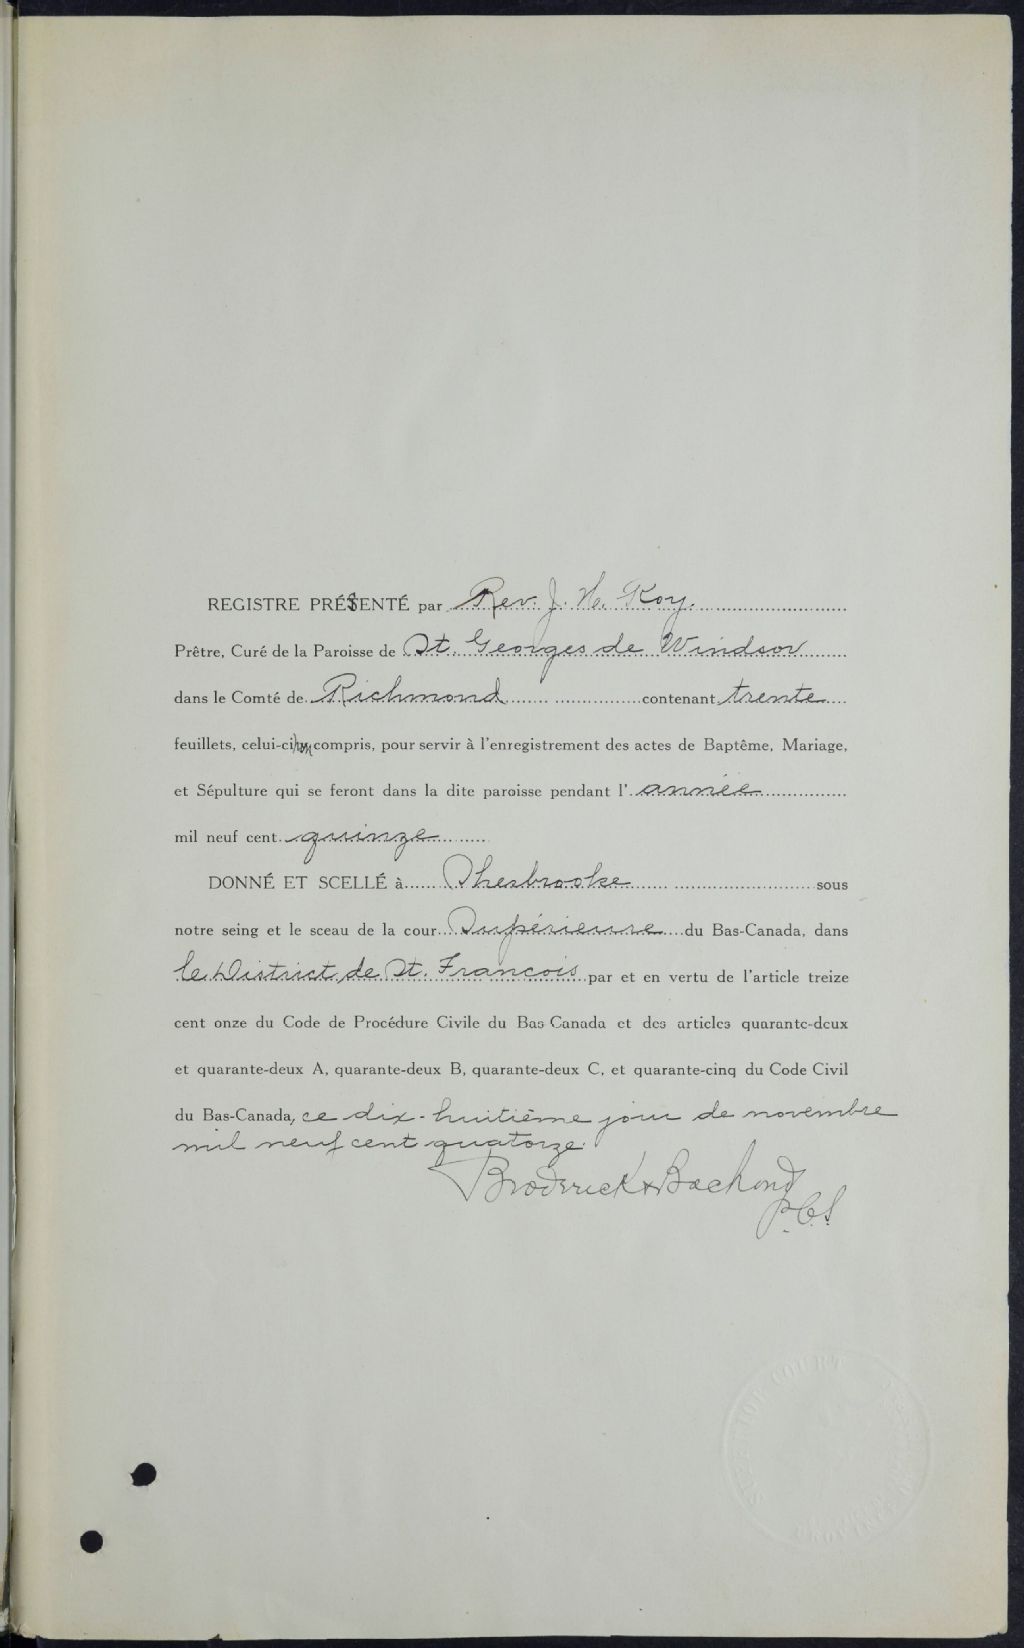 REGISTRE PRÉSENTÉ par Rev. J. H. Roy.
Prêtre, Curé de la Paroisse de St. Georges de Windsor
dans le Comté de Richmond contenant trente
feuillets, celui-ci non compris, pour servir à l'enregistrement des actes de Baptême, Mariage,
et Sépulture qui se feront dans la dite paroisse pendant l' année
mil neuf cent quinze
DONNÉ ET SCELLÉ à Sherbrooke sous
notre seing et le sceau de la cour Supérieure du Bas-Canada, dans
le District de St. François par et en vertu de l'article treize
cent onze du Code de Procédure Civile du Bas Canada et des articles quarante-deux
et quarante-deux A, quarante-deux B, quarante-deux C, et quarante-cinq du Code Civil
du Bas-Canada, ce dix-huitième jour de novembre
mil neuf cent quatorze.
Broderick & Bachand
P.C.S.
SUPERIOR COURT